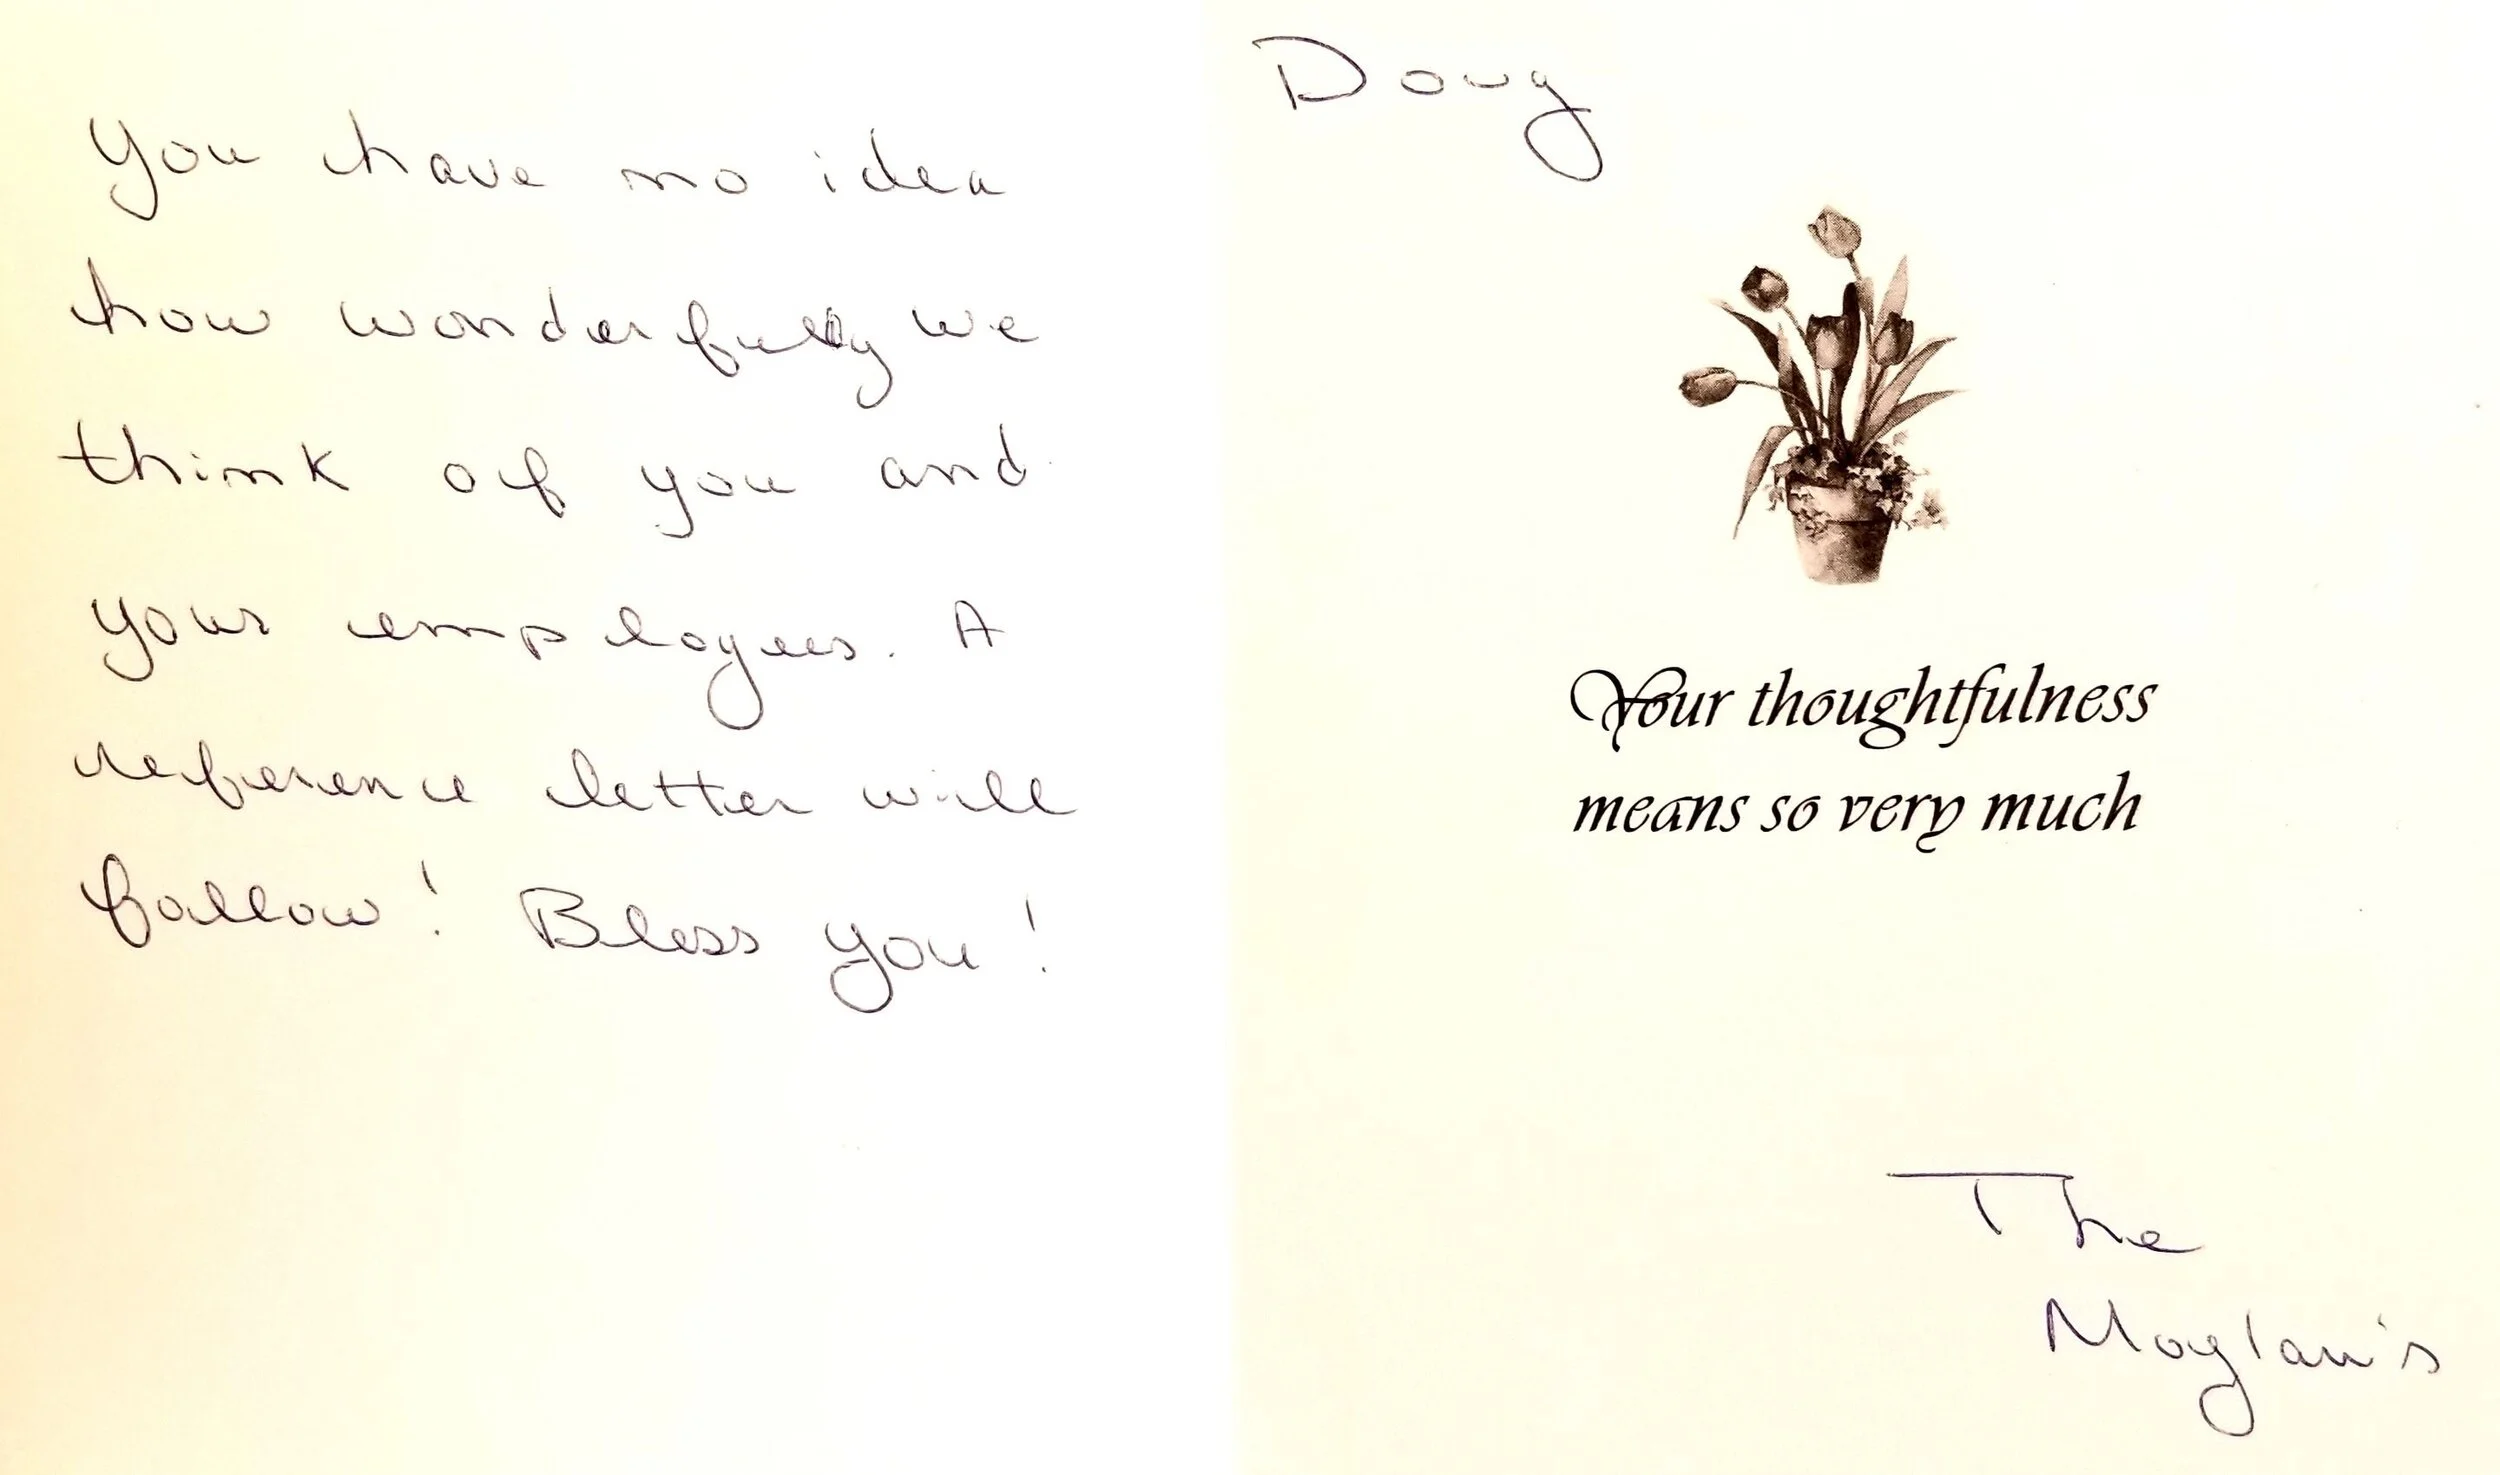 You have no idea
how wonderfully we
think of you and
your employees. A
reference letter will
follow! Bless you!
Doug
Your thoughtfulness
means so very much
The
Moylan's